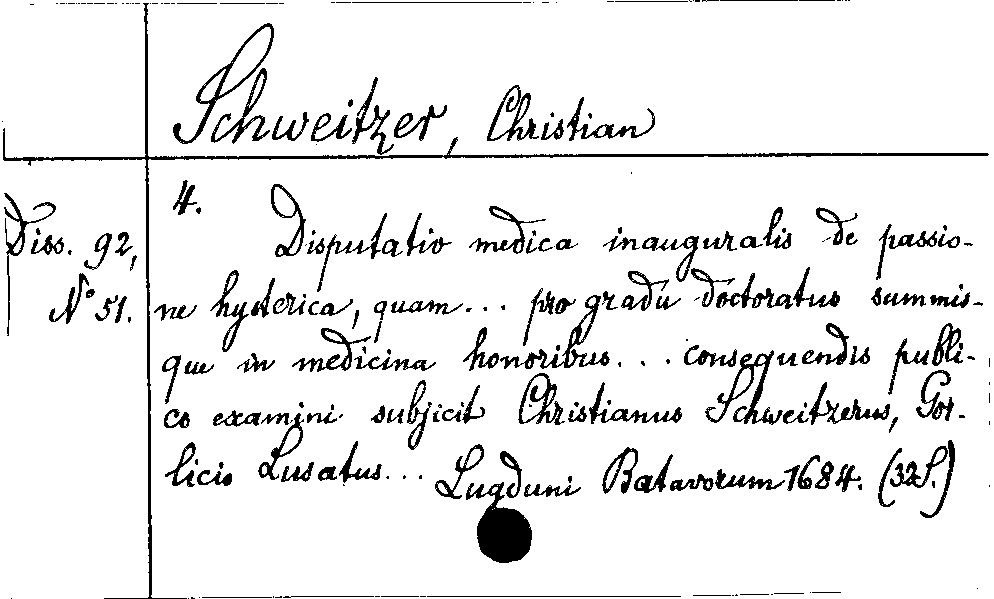 Schweitzer, Christian
4.
Diss. 92,
No 51.
Disputatio medica inauguralis de passio-
ne hysterica, quam... pro gradu doctoratus summis-
que in medicina honoribus... consequendis publi-
co examini subjicit Christianus Schweitzerus, Gor-
licio Lusatus...
Lugduni Batavorum 1684. (32S.)